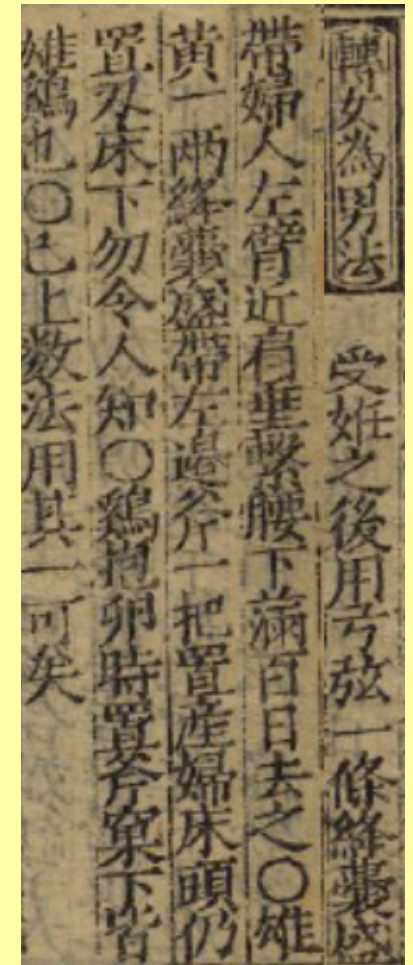 轉女為男法
受妊之後用弓弦一條絳囊盛
帶婦人左臂近肩垂繫腰下滿百日去之〇雄
黃一兩絳囊盛帶左邊斧一把置產婦床頭仍
置刃床下勿令人知〇鷄抱卵時置斧窠下皆
雄鷄也〇已上数法用其一可矣